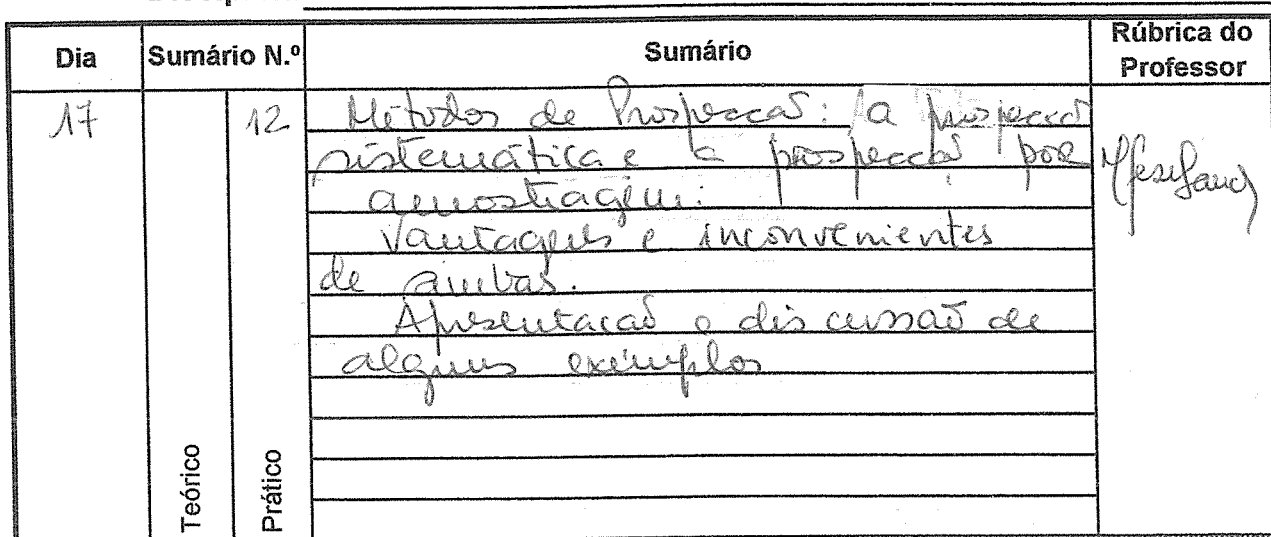 Dia Sumário N.º Sumário Rúbrica do Professor
17 12 Métodos de Prospecção: a prospecção
sistemática e a prospecção por
amostragem.
Vantagens e inconvenientes
de ambas.
Apresentação e discussão de
alguns exemplos
Teórico
Prático